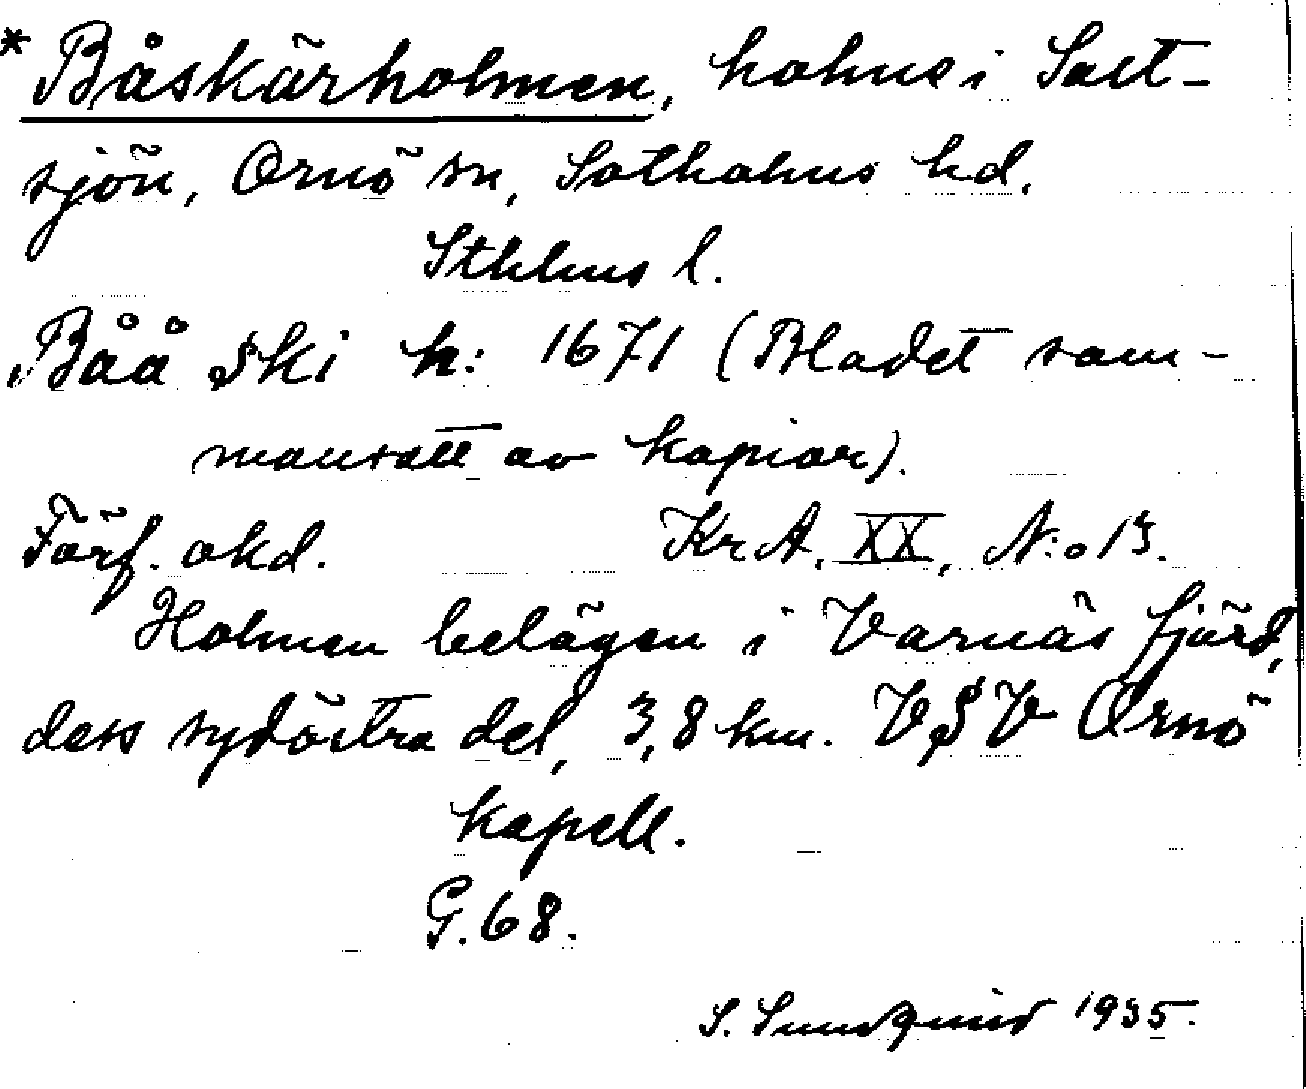 * Båskärholmen, holme i Salt-
sjön, Ornö sn, Sotholms hd.
Sthlms l.
Båå ski h: 1671 (Bladet sam-
mansatt av kopior).
Förf. okd. KrA, XX, N:o 13.
Holmen belägen i Varnäs fjärd,
dess sydöstra del, 3,8 km. VSV Ornö
kapell.
G. 68.
S. Sundqvist 1935.